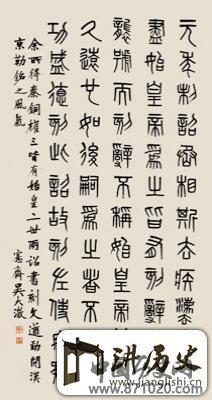 元年制詔丞相斯去疾灋
盡始皇帝為之皆有刻辭
襲號而刻辭不稱始皇帝
久遠也如後嗣為之者
功盛德刻此詔故刻左使
余所得秦銅權三皆有始皇二世兩詔書刻文遒勁開漢
京勒銘之風氣
愙齋吳大澂
讲历史
www.jianglishi.cn
www.871020.com